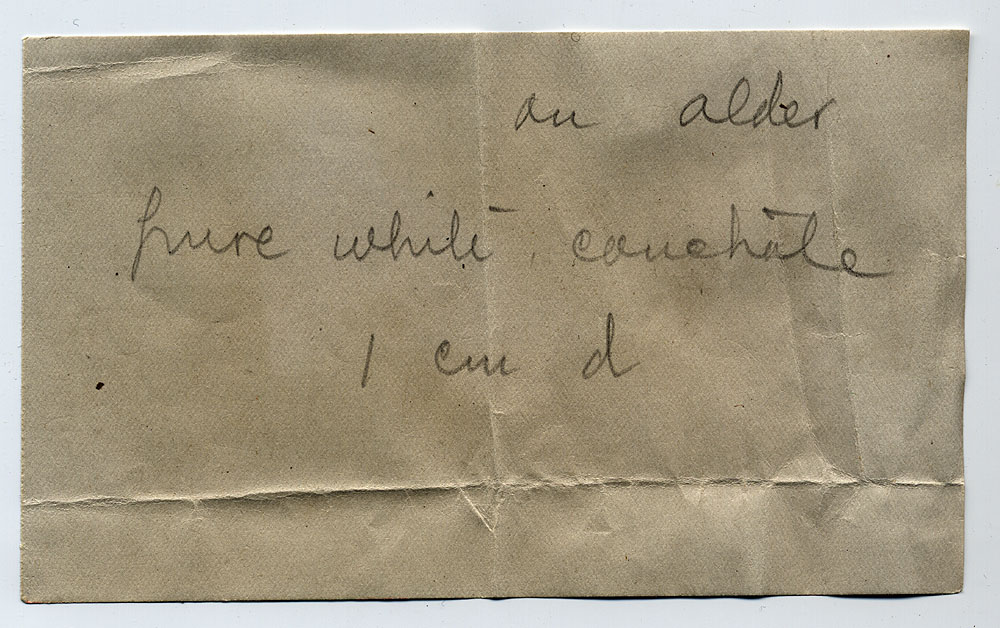 on alder
pure white, conchate
1 cm d